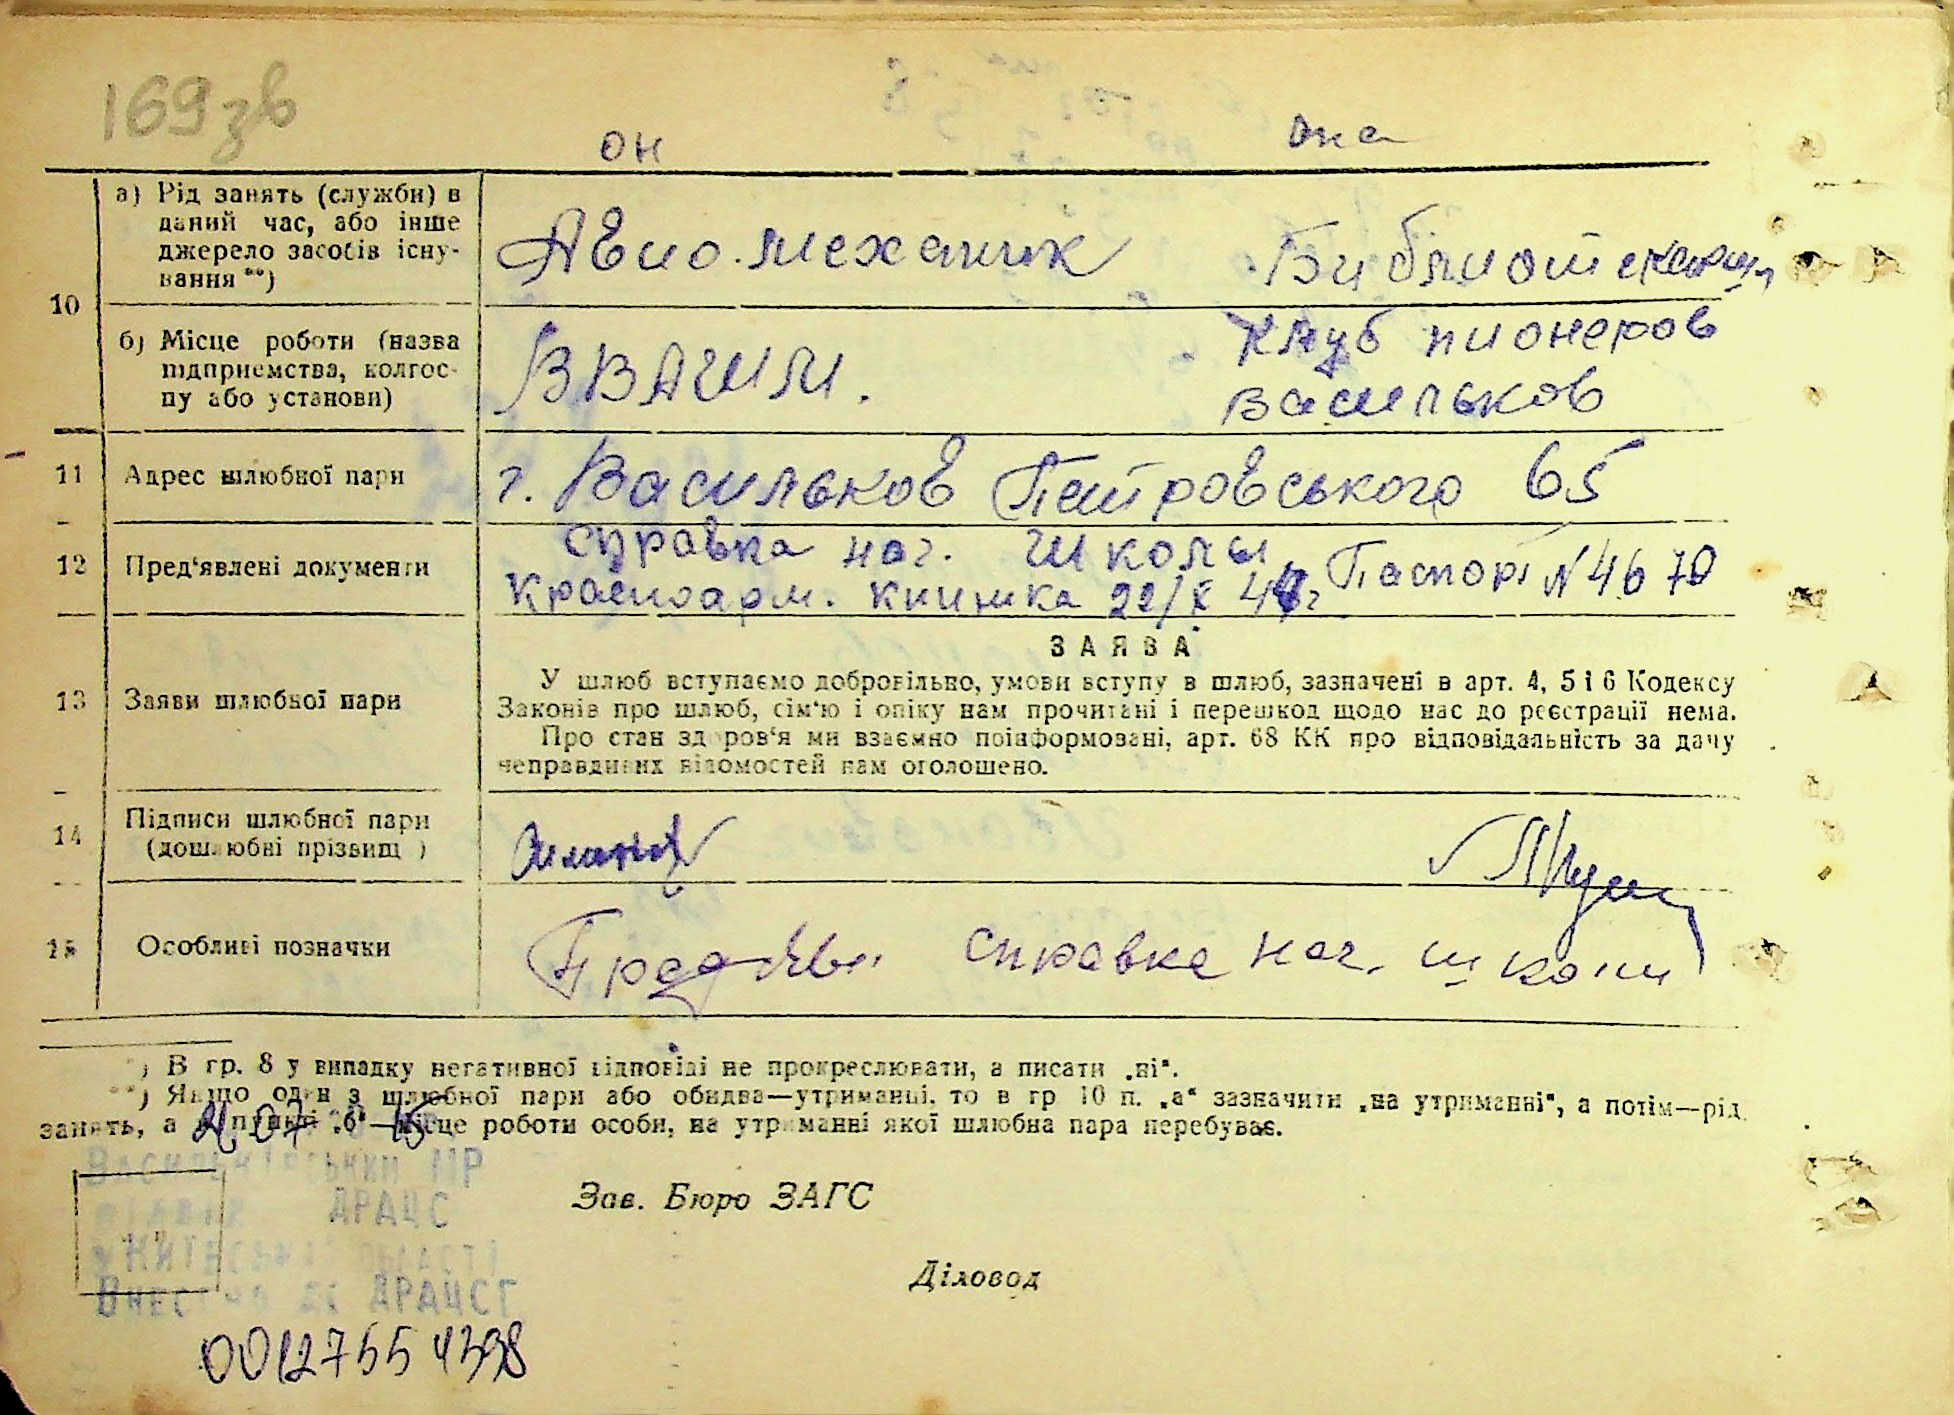 169зв
он она
10
а) Рід занять (служби) в
даний час, або інше
джерело засобів існу-
вання **)
Авио.механик Библиотекарш
б) Місце роботи (назва
підприємства, колгос-
пу або установи)
ВВАШМ. Клуб пионеров
Васильков
11 Адрес шлюбної пари г. Васильков Петровського 65
12 Пред'явлені документи
справка нач. школы
Красноарм. книжка 22/X 44г Паспорт N 4670
ЗАЯВА
13 Заяви шлюбної пари
У шлюб вступаємо добровільно, умови вступу в шлюб, зазначені в арт. 4, 5 і 6 Кодексу
Законів про шлюб, сім'ю і опіку нам прочитані і перешкод щодо нас до реєстрації нема.
Про стан здоров'я ми взаємно поінформовані, арт. 68 КК про відповідальність за дачу
неправдивих відомостей нам оголошено.
14 Підписи шлюбної пари
(дошлюбні прізвищ )
15 Особливі позначки справка нач. школи
*) В гр. 8 у випадку негативної відповіді не прокреслювати, а писати „ні“.
**) Якщо один з шлюбної пари або обидва—утриманці, то в гр 10 п. „а“ зазначити „на утриманні“, а потім—рід
занять, а в пункті „б“—місце роботи особи, на утриманні якої шлюбна пара перебуває.
Васильківський МР
відділ ДРАЦС
у Київській області
Внесено до ДРАЦСГ
Зав. Бюро ЗАГС
Діловод
00127554398